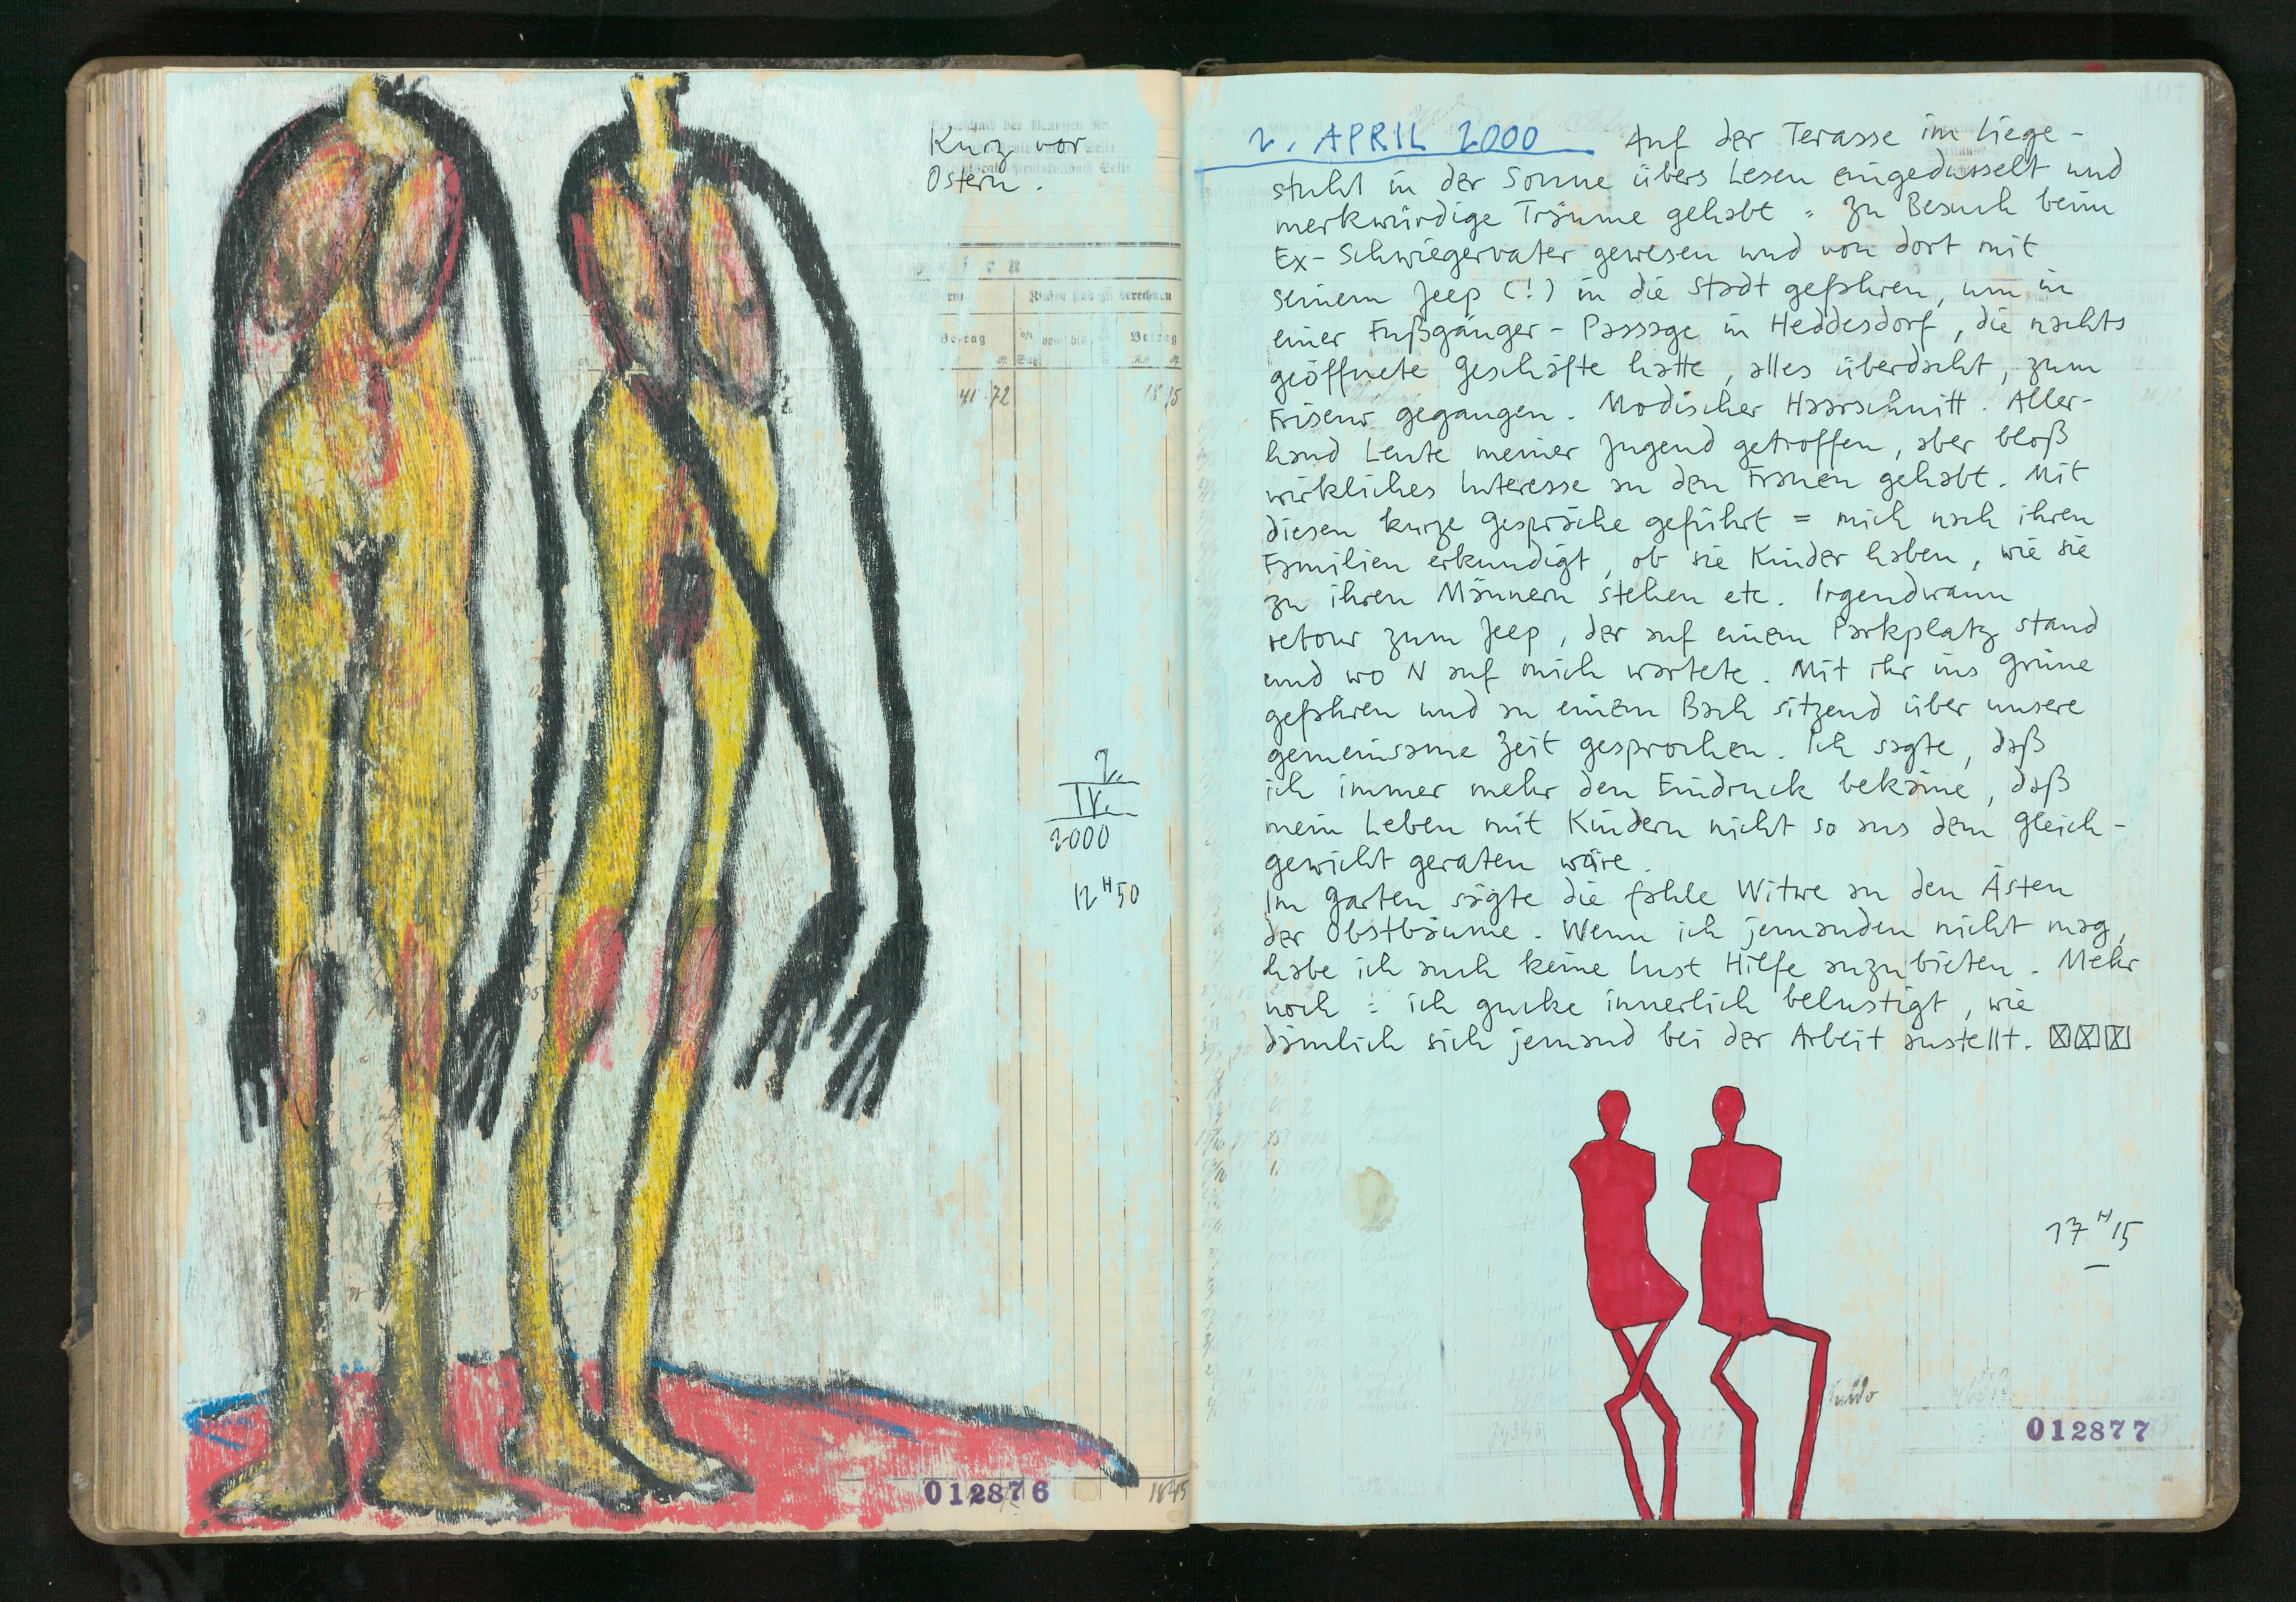 Kurz vor
Ostern.
Zinsen sind zu berechnen
Betrag
Betrag
41 72
2.
IV.
2000
12 H 50
012876
1845
2. APRIL 2000 Auf der Terasse im Liege-
stuhl in der Sonne übers Lesen eingedusselt und
merkwürdige Träume gehabt = Zu Besuch beim
Ex-Schwiegervater gewesen und von dort mit
seinem Jeep (!) in die Stadt gefahren, um in
einer Fußgänger-Passage in Heddesdorf, die nachts
geöffnete Geschäfte hatte, alles überdacht, zum
Friseur gegangen. Modischer Haarschnitt. Aller-
hand Leute meiner Jugend getroffen, aber bloß
wirkliches Interesse an den Frauen gehabt. Mit
diesen kurze Gespräche geführt = mich nach ihren
Familien erkundigt, ob sie Kinder haben, wie sie
zu ihren Männern stehen etc. Irgendwann
retour zum Jeep, der auf einem Parkplatz stand
und wo N auf mich wartete. Mit ihr ins Grüne
gefahren und an einem Bach sitzend über unsere
gemeinsame Zeit gesprochen. Ich sagte, daß
ich immer mehr den Eindruck bekäme, daß
mein Leben mit Kindern nicht so aus dem Gleich-
gewicht geraten wäre.
Im Garten sägte die fahle Witwe an den Ästen
der Obstbäume. Wenn ich jemanden nicht mag,
habe ich auch keine Lust Hilfe anzubieten. Mehr
noch = ich gucke innerlich belustigt, wie
dämlich sich jemand bei der Arbeit anstellt.
17 H 15
012877